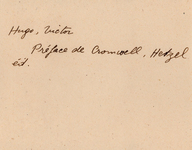 Hugo, Victor
Préface de Cromwell, Hetzel
éd.